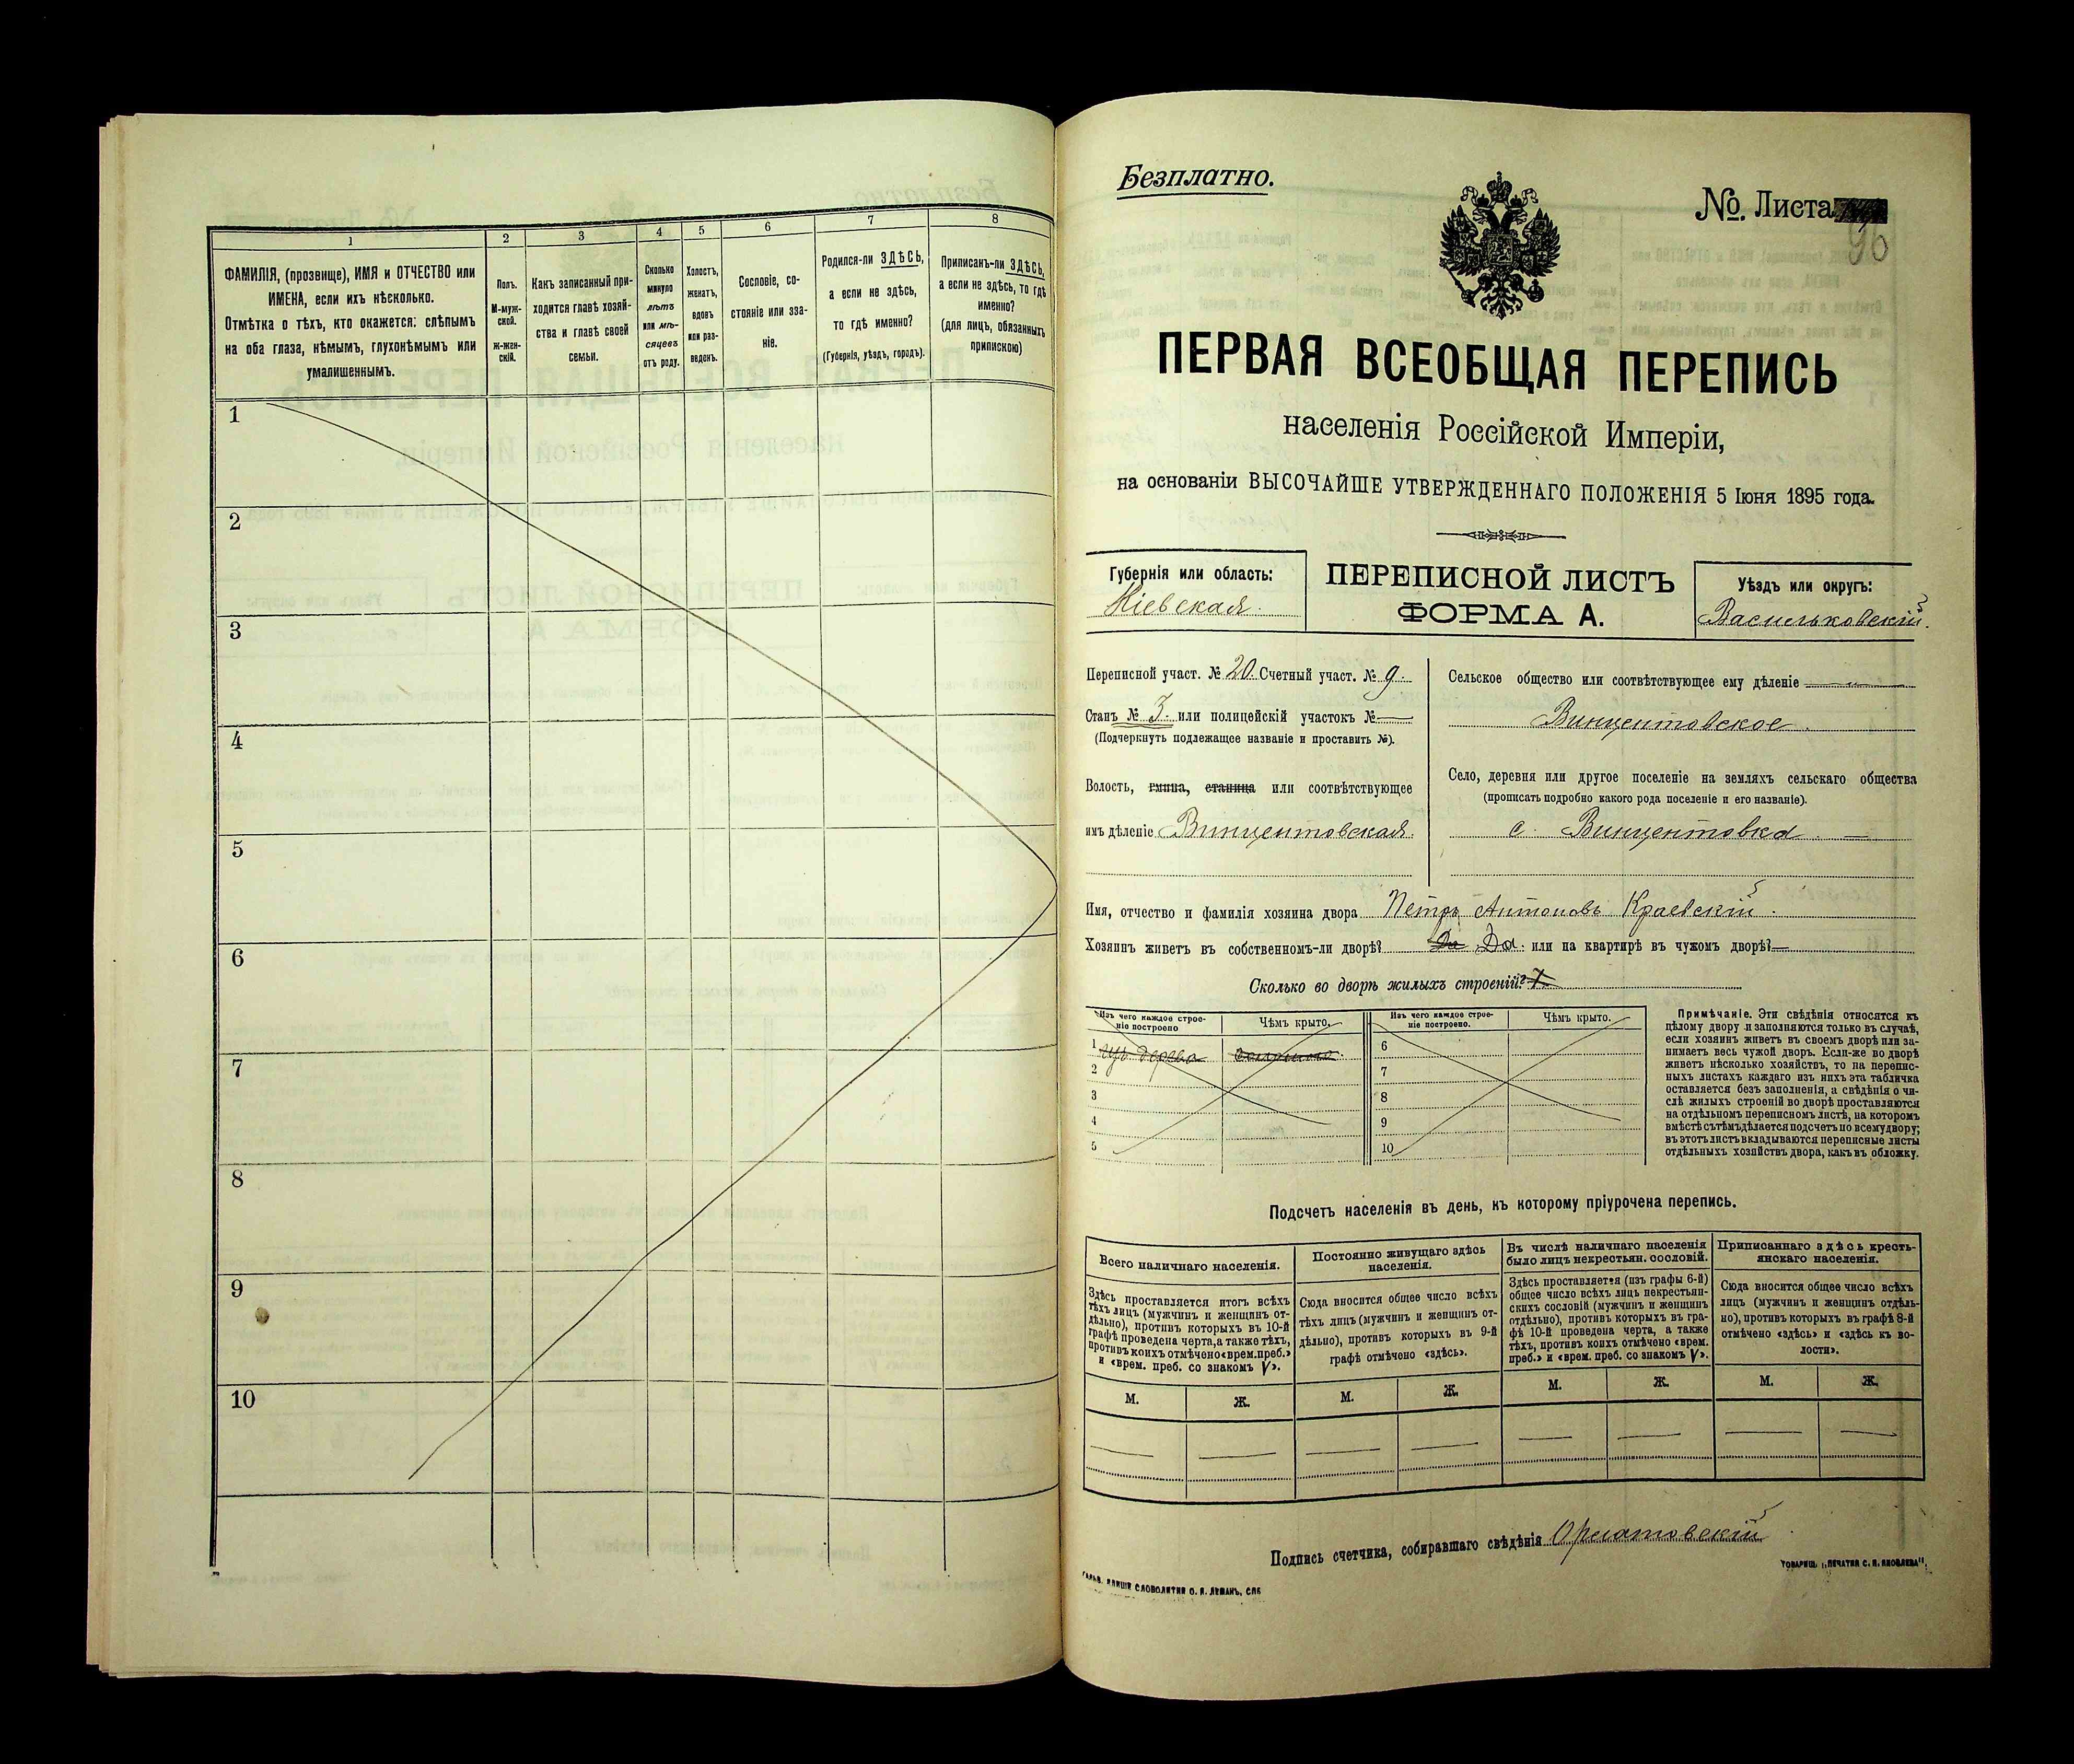 1 2 3 4 5 6 7 8
ФАМИЛІЯ, (прозвище), ИМЯ и ОТЧЕСТВО или
ИМЕНА, если ихъ нѣсколько.
Отмѣтка о тѣхъ, кто окажется: слѣпымъ
на оба глаза, нѣмымъ, глухонѣмымъ или
умалишеннымъ.
Полъ.
М-муж-
ской.
ж-жен-
скій.
Какъ записанный при-
ходится главѣ хозяй-
ства и главѣ своей
семьи.
Сколько
минуло
лѣтъ
или мѣ-
сяцевъ
отъ роду.
Холостъ,
женатъ,
вдовъ
или раз-
веденъ.
Сословіе, со-
стояніе или зва-
ніе.
Родился-ли ЗДѢСЬ,
а если не здѣсь,
то гдѣ именно?
(Губернія, уѣздъ, городъ).
Приписанъ-ли ЗДѢСЬ,
а если не здѣсь, то гдѣ
именно?
(для лицъ, обязанныхъ
припискою)
1
2
3
4
5
6
7
8
9
10
Безплатно.
№. Листа
96
ПЕРВАЯ ВСЕОБЩАЯ ПЕРЕПИСЬ
населенія Россійской Имперіи,
на основаніи ВЫСОЧАЙШЕ УТВЕРЖДЕННАГО ПОЛОЖЕНІЯ 5 Іюня 1895 года.
Губернія или область:
Кіевская.
ПЕРЕПИСНОЙ ЛИСТЪ
ФОРМА А.
Уѣздъ или округъ:
Васильковскій.
Переписной участ. № 20. Счетный участ. № 9.
Станъ № 3. или полицейскій участокъ № —
(Подчеркнуть подлежащее названіе и проставить №).
Волость, гмина, станица или соотвѣтствующее
имъ дѣленіе Винцентовская.
Сельское общество или соотвѣтствующее ему дѣленіе
Винцентовское.
Село, деревня или другое поселеніе на земляхъ сельскаго общества
(прописать подробно какого рода поселеніе и его названіе).
с. Винцентовка —
Имя, отчество и фамилія хозяина двора Петръ Антоновъ Краевскій.
Хозяинъ живетъ въ собственномъ-ли дворѣ? Да Да. или на квартирѣ въ чужомъ дворѣ? —
Сколько во дворѣ жилыхъ строеній? 1.
Изъ чего каждое строе-
ніе построено
Чѣмъ крыто.
Изъ чего каждое строе-
ніе построено.
Чѣмъ крыто.
1 изъ дерева соломою.
2
3
4
5
6
7
8
9
10
Примѣчаніе. Эти свѣдѣнія относятся къ
цѣлому двору и заполняются только въ случаѣ,
если хозяинъ живетъ въ своемъ дворѣ или за-
нимаетъ весь чужой дворъ. Если-же во дворѣ
живетъ нѣсколько хозяйствъ, то на перепис-
ныхъ листахъ каждаго изъ нихъ эта табличка
оставляется безъ заполненія, а свѣдѣнія о чи-
слѣ жилыхъ строеній во дворѣ проставляются
на отдѣльномъ переписномъ листѣ, на которомъ
вмѣстѣ съ тѣмъ дѣлается подсчетъ по всему двору;
въ этотъ листъ вкладываются переписные листы
отдѣльныхъ хозяйствъ двора, какъ въ обложку.
Подсчетъ населенія въ день, къ которому пріурочена перепись.
Всего наличнаго населенія.
Здѣсь проставляется итогъ всѣхъ
тѣхъ лицъ (мужчинъ и женщинъ от-
дѣльно), противъ которыхъ въ 10-й
графѣ проведена черта, а также тѣхъ,
противъ коихъ отмѣчено «врем. преб.»
и «врем. преб. со знакомъ V».
Постоянно живущаго здѣсь
населенія.
Сюда вносится общее число всѣхъ
тѣхъ лицъ (мужчинъ и женщинъ от-
дѣльно), противъ которыхъ въ 9-й
графѣ отмѣчено «здѣсь».
Въ числѣ наличнаго населенія
было лицъ некрестьян. сословій.
Здѣсь проставляется (изъ графы 6-й)
общее число всѣхъ лицъ некрестьян-
скихъ сословій (мужчинъ и женщинъ
отдѣльно), противъ которыхъ въ гра-
фѣ 10-й проведена черта, а также
тѣхъ, противъ коихъ отмѣчено «врем.
преб.» и «врем. преб. со знакомъ V».
Приписаннаго здѣсь кресть-
янскаго населенія.
Сюда вносится общее число всѣхъ
лицъ (мужчинъ и женщинъ отдѣль-
но), противъ которыхъ въ графѣ 8-й
отмѣчено «здѣсь» и «здѣсь къ во-
лости».
М. Ж. М. Ж. М. Ж. М. Ж.
— — — — — — — —
Подпись счетчика, собиравшаго свѣдѣнія
СЛОВОЛИТНИ О. И. ЛЕМАНЪ, СПБ
ТОВАРИЩ. „ПЕЧАТНЯ С. П. ЯКОВЛЕВА".